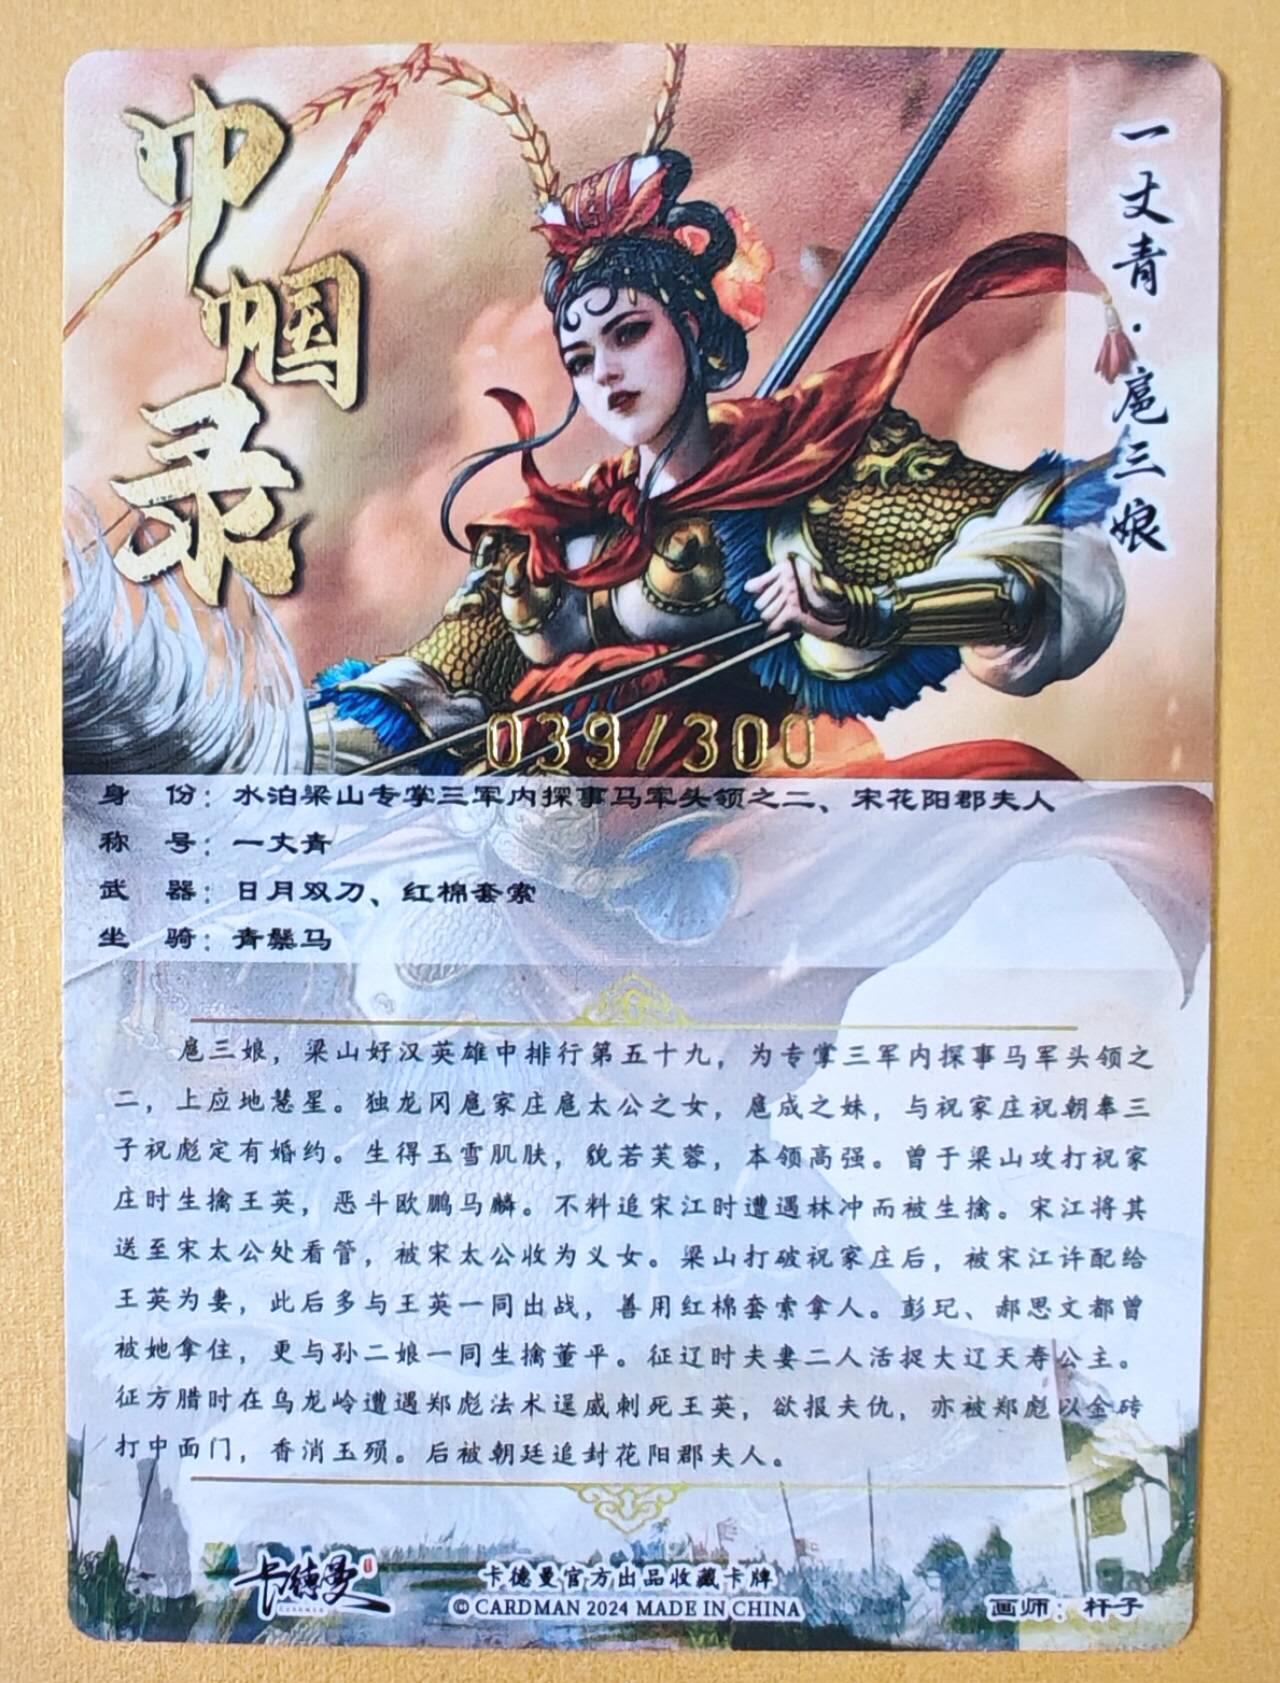 巾帼录
一丈青·扈三娘
039/300
身 份：水泊梁山专掌三军内探事马军头领之二、宋花阳郡夫人
称 号：一丈青
武 器：日月双刀、红棉套索
坐 骑：青鬃马
扈三娘，梁山好汉英雄中排行第五十九，为专掌三军内探事马军头领之
二，上应地慧星。独龙冈扈家庄扈太公之女，扈成之妹，与祝家庄祝朝奉三
子祝彪定有婚约。生得玉雪肌肤，貌若芙蓉，本领高强。曾于梁山攻打祝家
庄时生擒王英，恶斗欧鹏马麟。不料追宋江时遭遇林冲而被生擒。宋江将其
送至宋太公处看管，被宋太公收为义女。梁山打破祝家庄后，被宋江许配给
王英为妻，此后多与王英一同出战，善用红棉套索拿人。彭玘、郝思文都曾
被她拿住，更与孙二娘一同生擒董平。征辽时夫妻二人活捉大辽天寿公主。
征方腊时在乌龙岭遭遇郑彪法术逞威刺死王英，欲报夫仇，亦被郑彪以金砖
打中面门，香消玉殒。后被朝廷追封花阳郡夫人。
卡德曼
卡德曼官方出品收藏卡牌
© CARDMAN 2024 MADE IN CHINA
画师：杆子